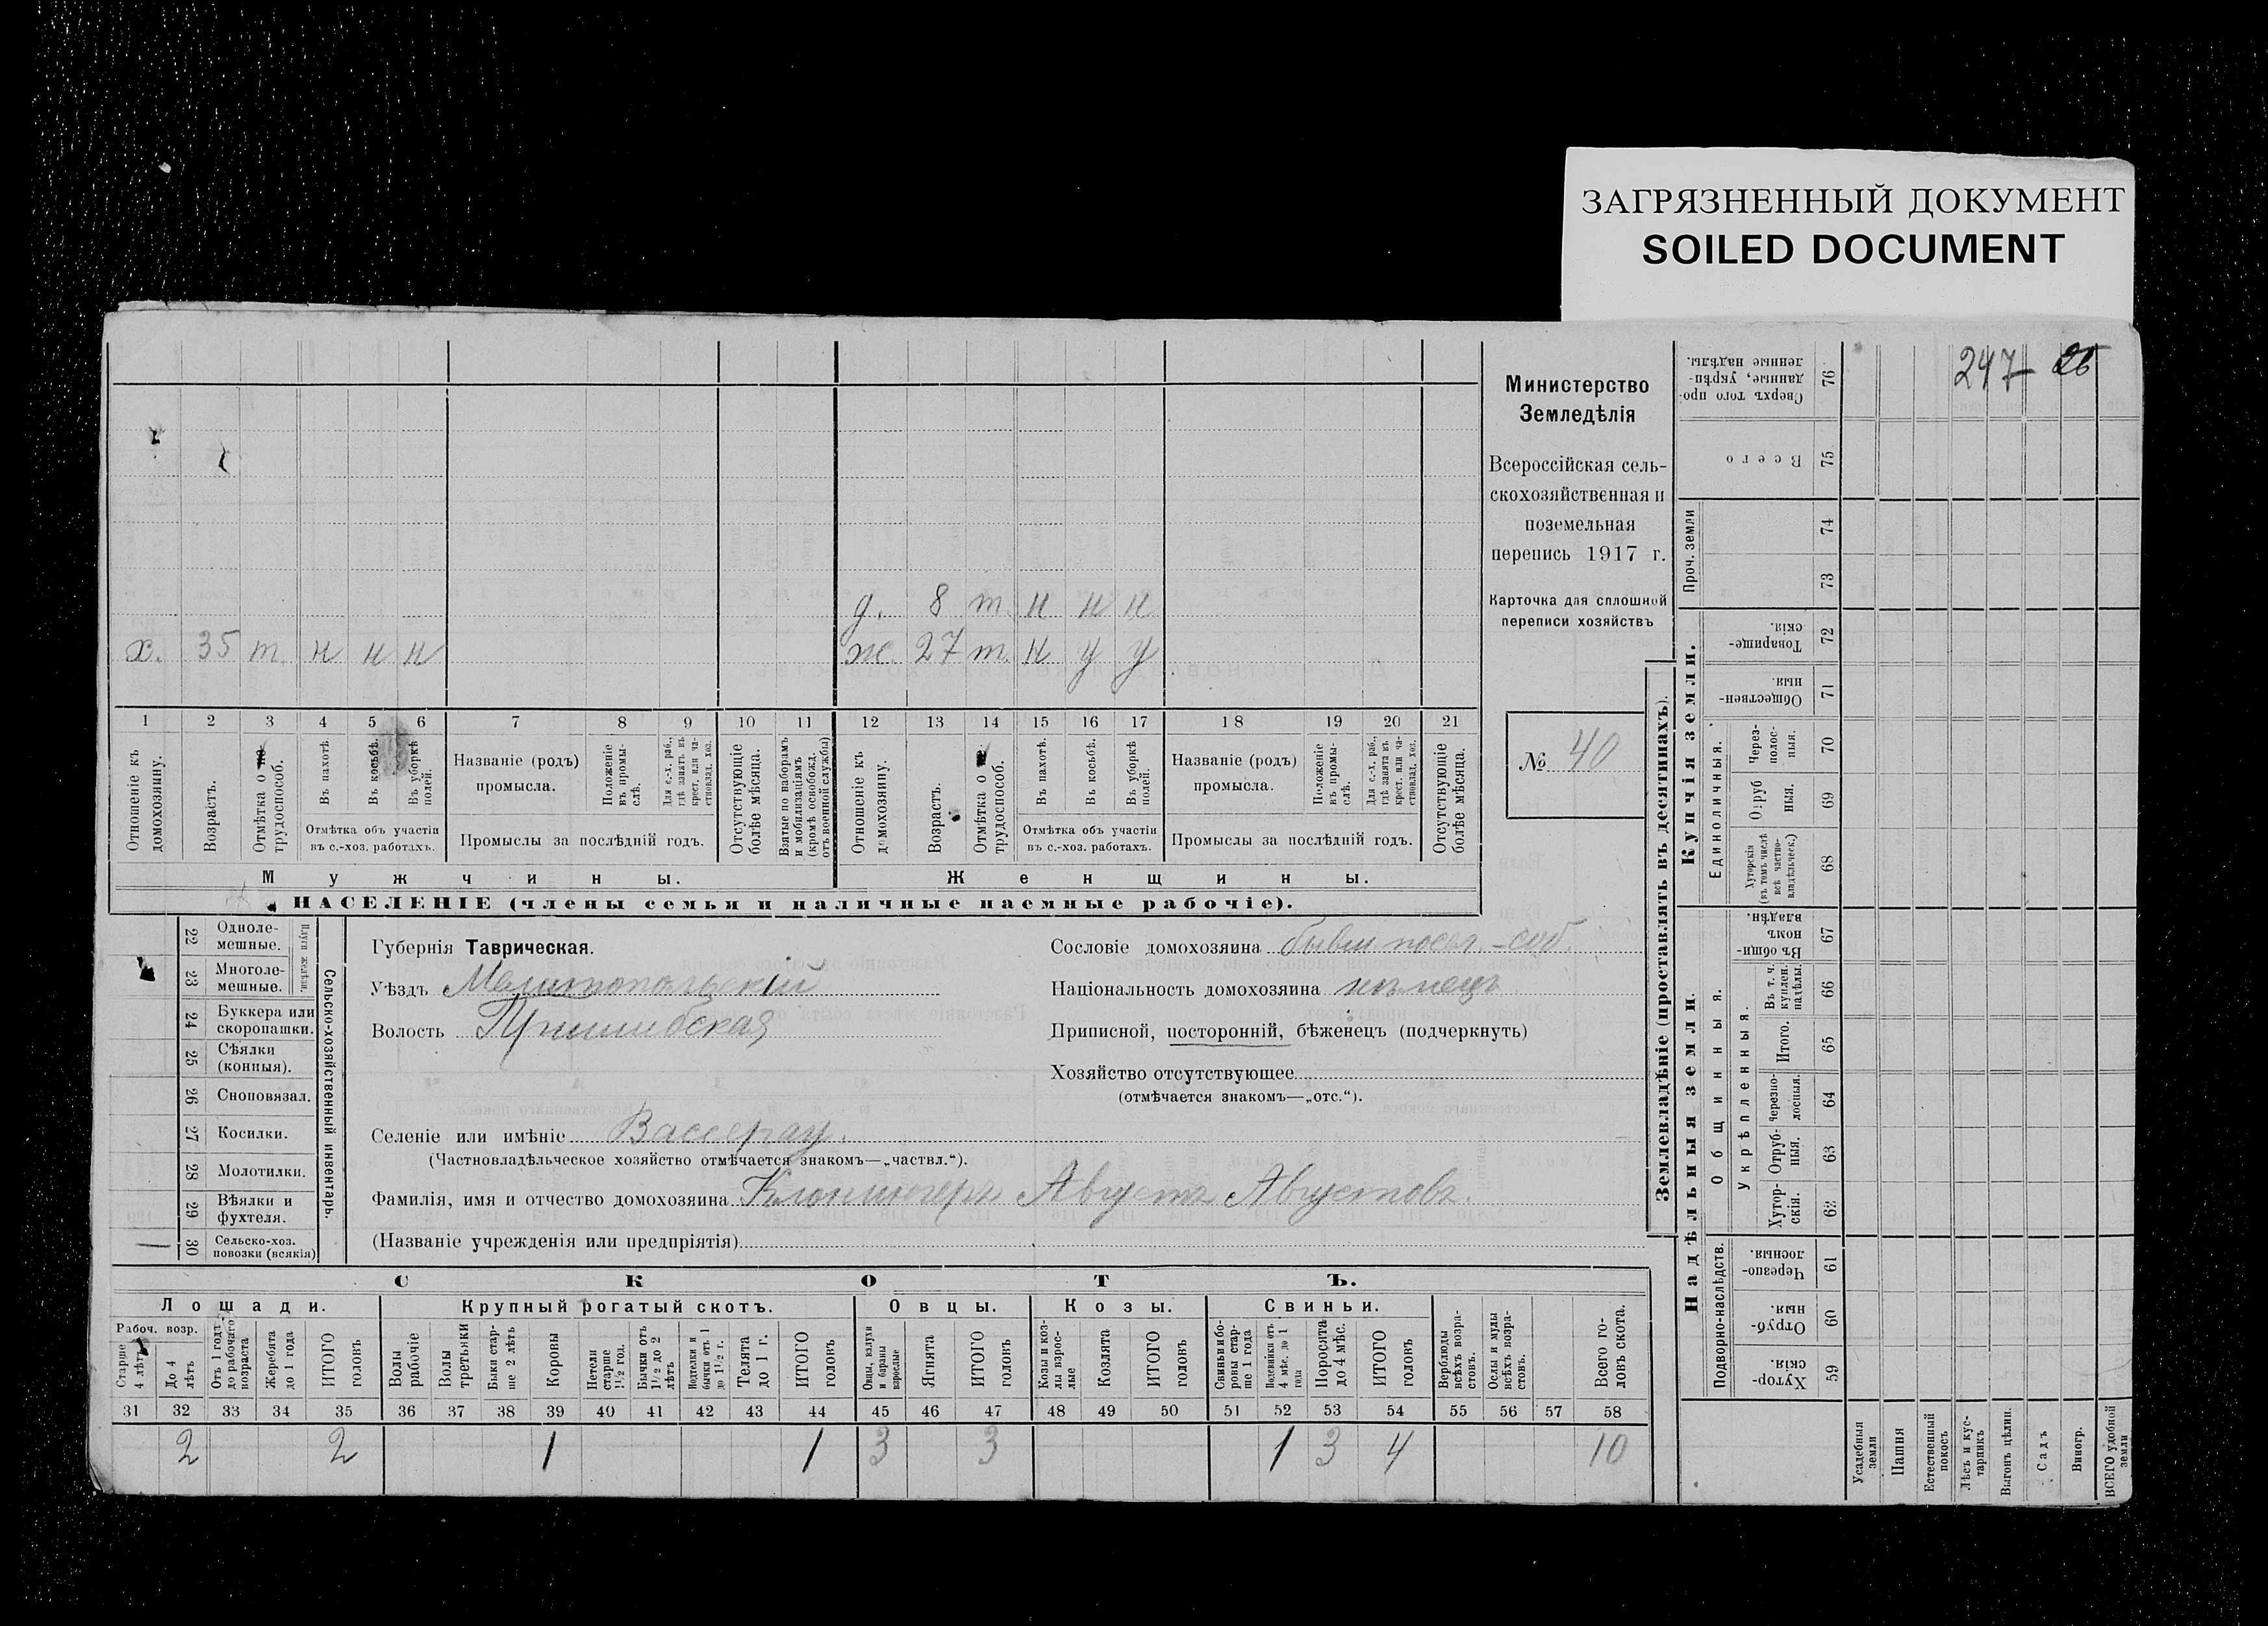 ЗАГРЯЗНЕННЫЙ ДОКУМЕНТ
SOILED DOCUMENT
247 26
Министерство
Земледѣлія
Всероссійская сель-
скохозяйственная и
поземельная
перепись 1917 г.
Карточка для сплошной
переписи хозяйствъ
№ 40
д. 8 т. н н н
х. 35 т. н н н
ж. 27 т. н у у
1 2 3 4 5 6 7 8 9 10 11 12 13 14 15 16 17 18 19 20 21
Отношеніе къ домохозяину.
Возрастъ.
Отмѣтка о трудоспособ.
Въ пахотѣ.
Въ косьбѣ.
Въ уборкѣ полей.
Отмѣтка объ участіи въ с.-хоз. работахъ.
Названіе (родъ) промысла.
Положеніе въ промыслѣ.
Для с.-х. раб., гдѣ занятъ въ крест. или частновлад. хоз.
Промыслы за послѣдній годъ.
Отсутствующіе болѣе мѣсяца.
Взятые по наборамъ и мобилизаціямъ (кромѣ освобожд. отъ военной службы)
Отношеніе къ домохозяину.
Возрастъ.
Отмѣтка о трудоспособ.
Въ пахотѣ.
Въ косьбѣ.
Въ уборкѣ полей.
Отмѣтка объ участіи въ с.-хоз. работахъ.
Названіе (родъ) промысла.
Положеніе въ промыслѣ.
Для с.-х. раб., гдѣ занята въ крест. или частновлад. хоз.
Промыслы за послѣдній годъ.
Отсутствующіе болѣе мѣсяца.
Мужчины.
Женщины.
НАСЕЛЕНІЕ (члены семьи и наличные наемные рабочіе).
22 Одноле-мешные.
23 Многоле-мешные.
24 Буккера или скоропашки.
25 Сѣялки (конныя).
26 Сноповязал.
27 Косилки.
28 Молотилки.
29 Вѣялки и фухтеля.
30 Сельско-хоз. повозки (всякія)
Сельско-хозяйственный инвентарь.
Губернія Таврическая.
Уѣздъ Мелитопольскій
Волость Пришибская
Сословіе домохозяина бывш. посел.-соб.
Національность домохозяина нѣмецъ
Приписной, посторонній, бѣженецъ (подчеркнуть)
Хозяйство отсутствующее
(отмѣчается знакомъ—„отс.“).
Селеніе или имѣніе Вассерау.
(Частновладѣльческое хозяйство отмѣчается знакомъ—„частвл.“).
Фамилія, имя и отчество домохозяина Августъ Августовъ.
(Названіе учрежденія или предпріятія)
СКОТЪ.
Лошади. Крупный рогатый скотъ. Овцы. Козы. Свиньи.
Рабоч. возр.
Старше 4 лѣтъ
До 4 лѣтъ
Отъ 1 года до рабочаго возраста
Жеребята до 1 года
ИТОГО головъ
Волы рабочіе
Волы третьяки
Быки старше 2 лѣтъ
Коровы
Нетели старше 1½ год.
Бычки отъ 1½ до 2 лѣтъ
Подтелки и бычки отъ 1 до 1½ г.
Телята до 1 г.
ИТОГО головъ
Овцы, валухи и бараны взрослые
Ягнята
ИТОГО головъ
Козы и козлы взрослые
Козлята
ИТОГО головъ
Свиньи и боровы старше 1 года
Подсвинки отъ 4 мѣс. до 1 года
Поросята до 4 мѣс.
ИТОГО головъ
Верблюды всѣхъ возрастовъ.
Ослы и мулы всѣхъ возрастовъ.
Всего головъ скота.
31 32 33 34 35 36 37 38 39 40 41 42 43 44 45 46 47 48 49 50 51 52 53 54 55 56 57 58
2 2 1 1 3 3 1 3 4 10
Землевладѣніе (проставлять въ десятинахъ).
Купчія земли.
Надѣльныя земли.
76 Сверхъ того проданные, укрѣпленные надѣлы.
75 Всего
Проч. земли
74
73
72 Товарищескія.
71 Общественныя.
Единоличныя.
70 Черезполосныя.
69 Отрубныя.
68 Хуторскія (въ томъ числѣ всѣ частновладѣльческ.)
Общинныя.
67 Въ общинномъ владѣн.
Укрѣпленныя.
66 Въ т. ч. куплен. надѣлы.
65 Итого.
64 Черезполосныя.
63 Отрубныя.
62 Хуторскія.
Подворно-наслѣдств.
61 Черезполосныя.
60 Отрубныя.
59 Хуторскія.
Усадебныя земли
Пашня
Естественный покосъ
Лѣсъ и кустарникъ
Выгонъ цѣлин.
Садъ
Виногр.
ВСЕГО удобной земли